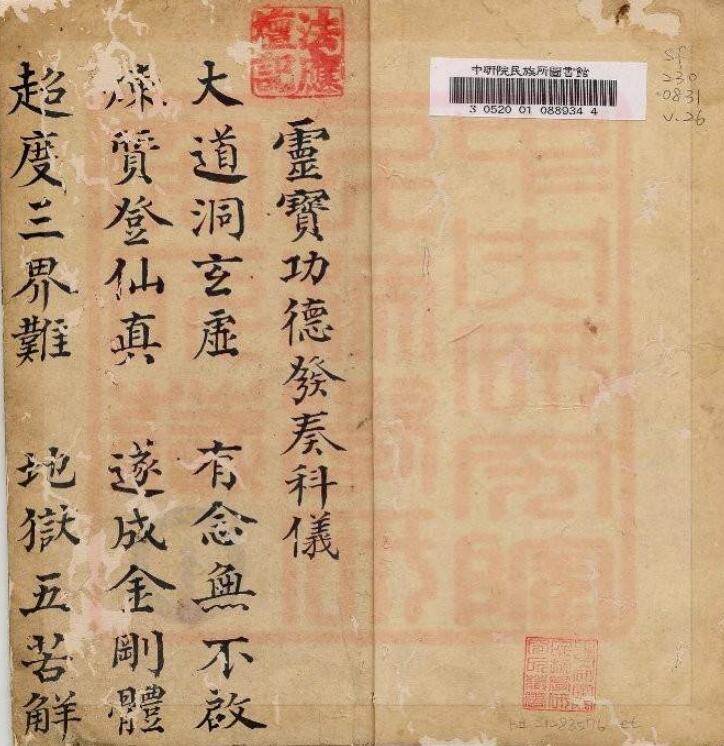 中研院民族所圖書館
3 0520 01 088934 4
230
0831
v.26
法應
壇記
靈寶功德發奏科儀
大道洞玄虛 有念無不啟
煉質登仙真 遂成金剛體
超度三界難 地獄五苦解